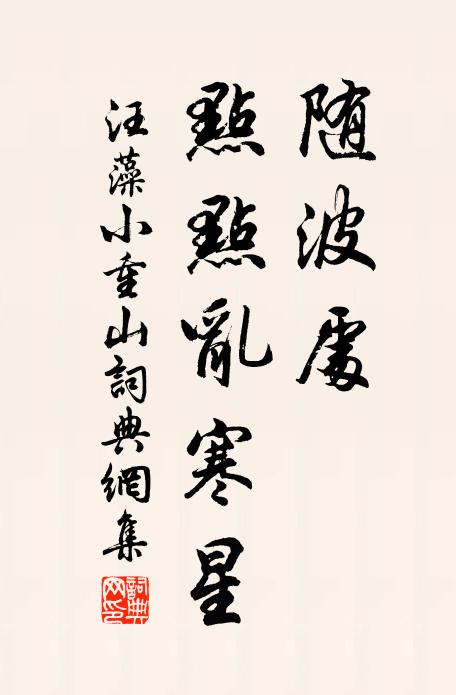 随波處
點點亂寒星
汪藻小重山詞典網集
詞典网印